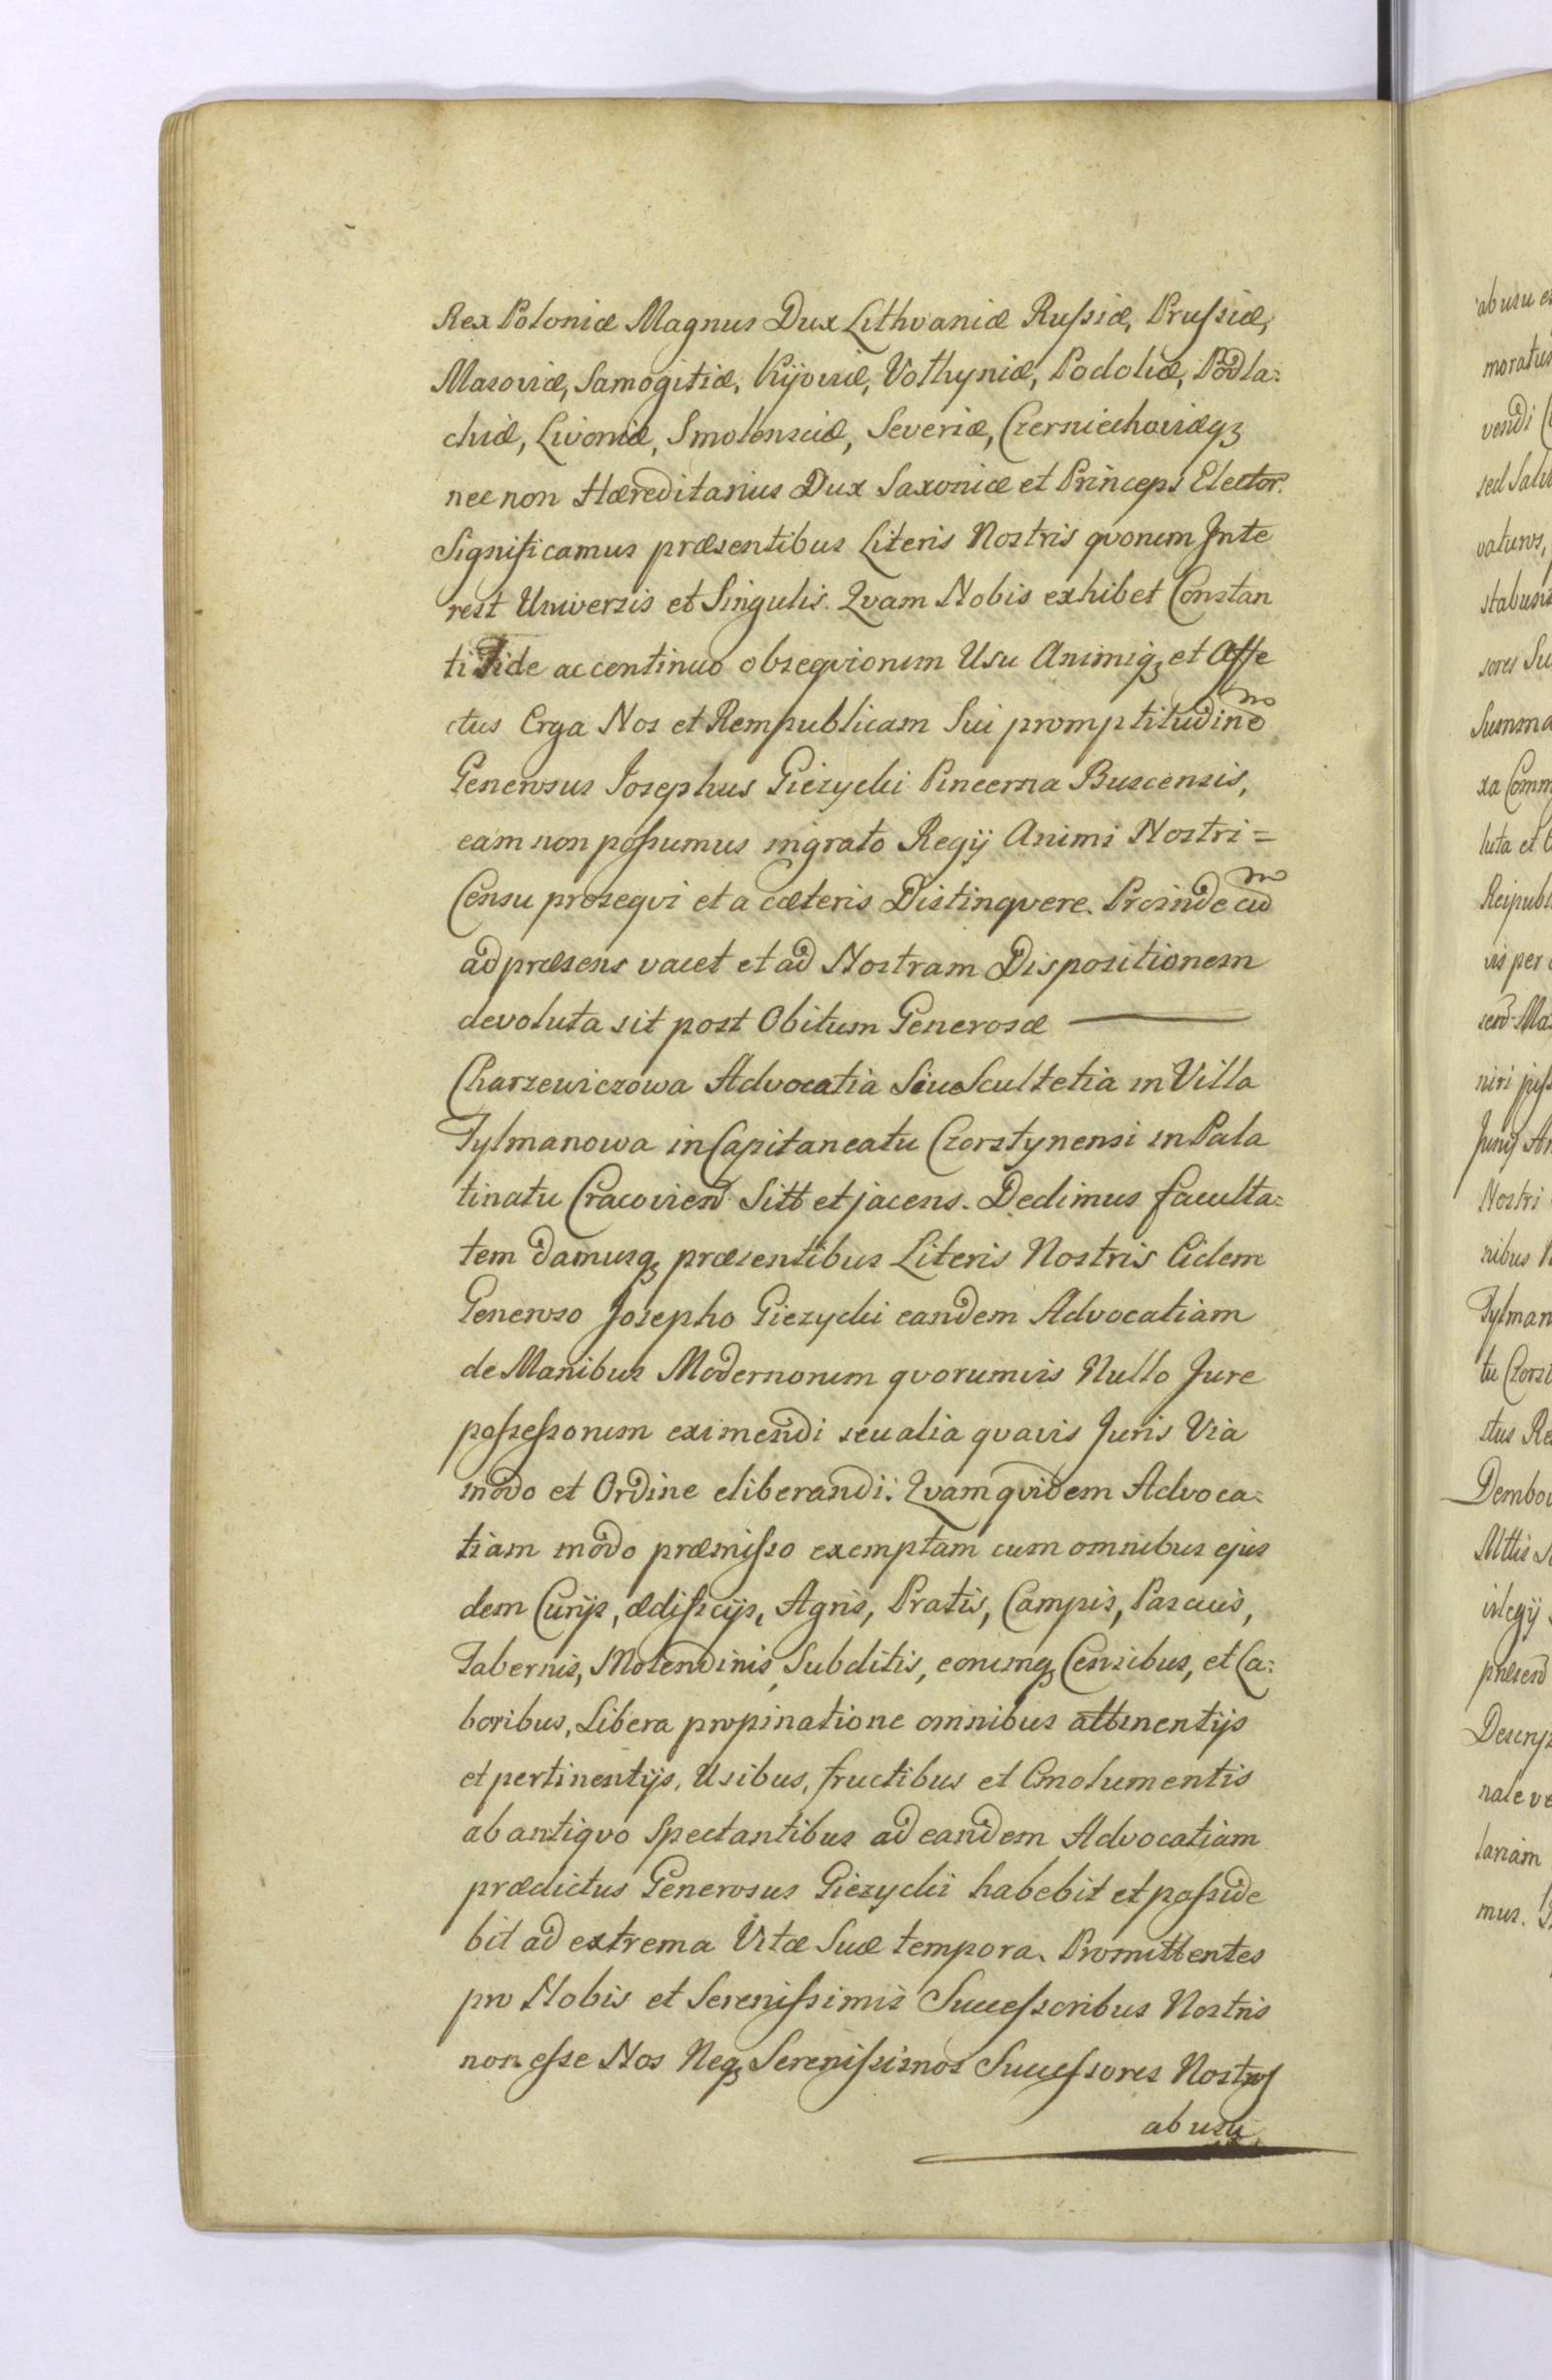 Rex Poloniæ Magnus Dux Lithvaniæ Russiæ, Prussiæ,
Masoviæ, Samogitiæ, Kijoviæ, Volhyniæ, Podoliæ, Podla:
chiæ, Livoniæ, Smolensciæ, Severiæ, Czerniechoviæqȝ
nec non Hæreditarius Dux Saxoniæ et Princeps Elector.
Significamus præsentibus Literis Nostris qvorum Inte
rest Universis et Singulis. Qvam Nobis exhibet Constan
ti Fide ac continuo obseqviorum Usu Animiqȝ et Affe
ctus Erga Nos et Rempublicam Sui promptitudine
Generosus Josephus Giezycki Pincerna Buscensis,
eam non possumus ingrato Regij Animi Nostri =
Censu proseqvi et a cæteris Distinqvere. Proinde cu͠
ad præsens vacet et ad Nostram Dispositionem
devoluta sit post Obitum Generosæ ———
Charzewiczowa Advocatia Sive Scultetia in Villa
Tylmanowa in Capitaneatu Czorstynensi in Pala
tinatu Cracovien Sitt et jacens. Dedimus faculta=
tem damusqȝ præsentibus Literis Nostris Eidem
Generoso Josepho Giezycki eandem Advocatiam
de Manibus Modernorum qvorumvis Nullo Jure
possessorum eximendi seu alia qvavis Juris Via
modo et Ordine eliberandi. Qvam qvidem Advoca=
tiam modo præmisso exemptam cum omnibus ejus
dem Curijs, ædificijs, Agris, Pratis, Campis, Pascuis,
Tabernis, Molendinis, Subditis, eorumqȝ Censibus, et La:
boribus, Libera propinatione omnibus attinentijs
et pertinentijs, Usibus, fructibus et Emolumentis
ab antiqvo Spectantibus ad eandem Advocatiam
prædictus Generosus Giezycki habebit et posside
bit ad extrema Vitæ Suæ tempora. Promittentes
pro Nobis et Serenissimis Successoribus Nostris
non esse Nos Neqȝ Serenissimos Successores Nostros
ab usu
abusu
moratur
vendi
sed Salv
vaturos,
stabunt
Summa
xa Comm
luta et
Reipubl
vis per
niri
Junij
Nostri
nibus
Tylman
tu Czorst
Dembow
præsen
Descrip
nale
lariam
mus.